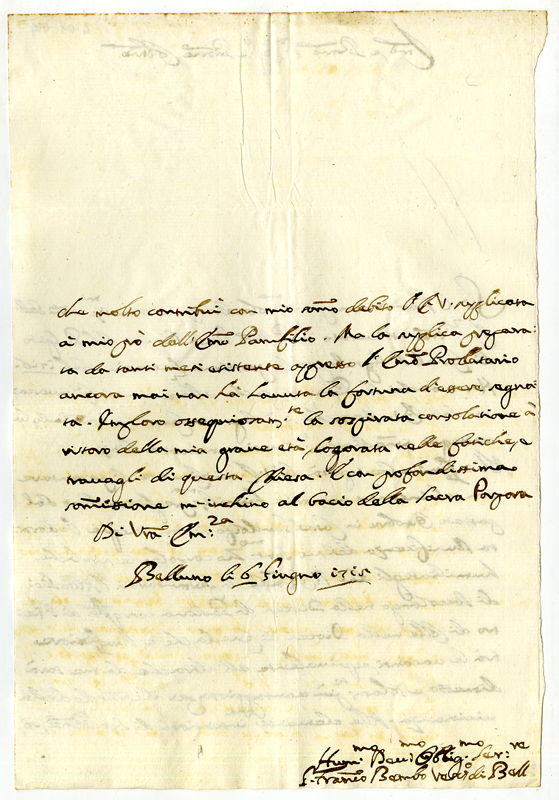 che molto contribuì con mio som̃o debito l' E V. supplicata
à mio prò dell'Em̃o Pamfilio. Ma la supplica prepara-
ta da tanti mesi esistente appresso l' Em̃o Prodatario
ancora mai non hà hauuta la fortuna d'essere segna-
ta. Imploro ossequiosam.te la sospirata consolatione à
ristoro della mia graue età, logorata nelle fatiche, e
trauagli di questa Chiesa. E con profondissima
som̃issione m'inchino al bacio della Sacra Porpora
Di Vra Em.za
Belluno li 6 Giugno 1715
Humi.mo Deu.mo Obblig.mo Ser.re
F. Franco Bembo Vesco di Bell